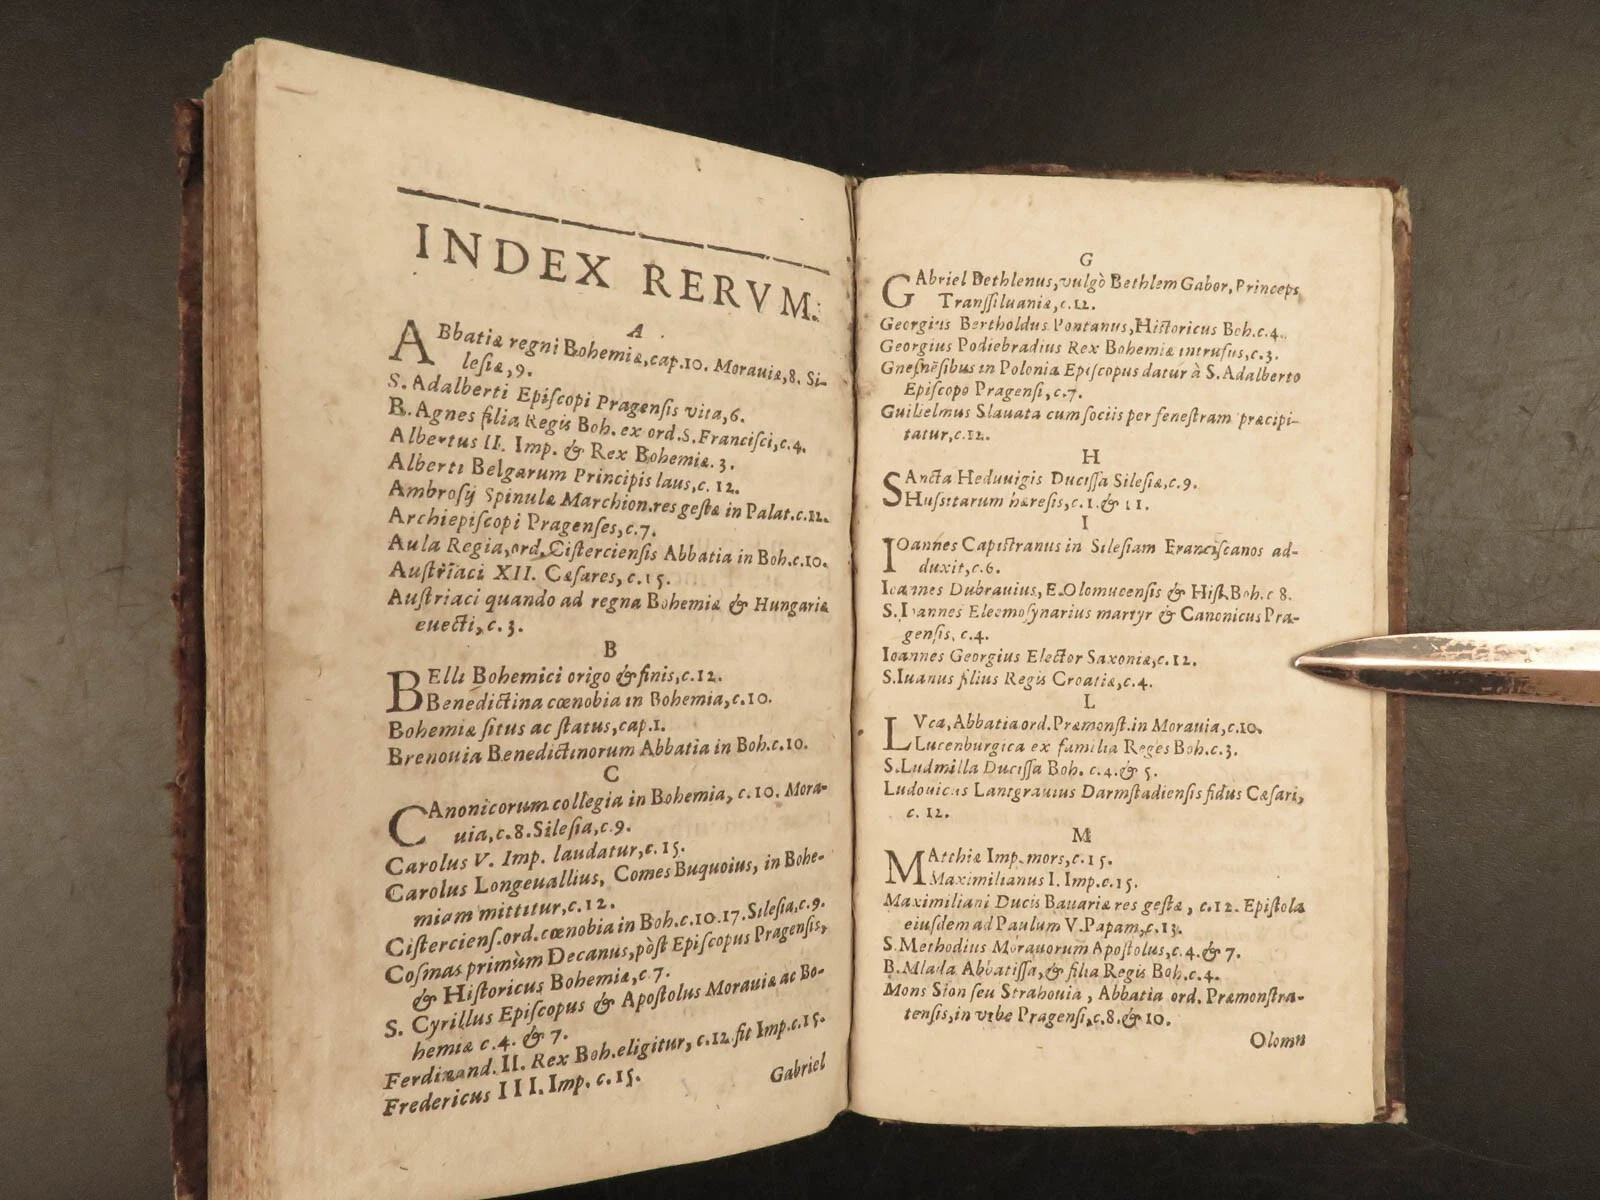 INDEX RERVM.
A
ABbatiæ regni Bohemiæ, cap. 10. Morauiæ, 8. Si-
lesiæ, 9.
S. Adalberti Episcopi Pragensis vita, 6.
B. Agnes filia Regis Boh. ex ord. S. Francisci, c. 4.
Albertus II. Imp. & Rex Bohemiæ. 3.
Alberti Belgarum Principis laus, c. 12.
Ambrosij Spinulæ Marchion. res gestæ in Palat. c. 12.
Archiepiscopi Pragenses, c. 7.
Aula Regia, ord. Cisterciensis Abbatia in Boh. c. 10.
Austriaci XII. Cæsares, c. 15.
Austriaci quando ad regna Bohemiæ & Hungariæ
euecti, c. 3.
B
BElli Bohemici origo & finis, c. 12.
Benedictina cœnobia in Bohemia, c. 10.
Bohemiæ situs ac status, cap. 1.
Brenouia Benedictinorum Abbatia in Boh. c. 10.
C
CAnonicorum collegia in Bohemia, c. 10. Mora-
uia, c. 8. Silesia, c. 9.
Carolus V. Imp. laudatur, c. 15.
Carolus Longeuallius, Comes Buquoius, in Bohe-
miam mittitur, c. 12.
Cisterciens. ord. cœnobia in Boh. c. 10. 17. Silesia, c. 9.
Cosmas primùm Decanus, pòst Episcopus Pragensis,
& Historicus Bohemiæ, c. 7.
S. Cyrillus Episcopus & Apostolus Morauiæ ac Bo-
hemiæ c. 4. & 7.
Ferdinand. II. Rex Boh. eligitur, c. 12. fit Imp. c. 15.
Fredericus III. Imp. c. 15.
Gabriel
G
GAbriel Bethlenus, vulgò Bethlem Gabor, Princeps
Transsiluaniæ, c. 12.
Georgius Bertholdus Pontanus, Historicus Boh. c. 4.
Georgius Podiebradius Rex Bohemiæ intrusus, c. 3.
Gnesnēsibus in Polonia Episcopus datur à S. Adalberto
Episcopo Pragensi, c. 7.
Guilielmus Slauata cum sociis per fenestram præcipi-
tatur, c. 12.
H
SAncta Heduuigis Ducissa Silesiæ, c. 9.
Hussitarum hæresis, c. 1. & 11.
I
IOannes Capistranus in Silesiam Franciscanos ad-
duxit, c. 6.
Ioannes Dubrauius, E. Olomucensis & Hist. Boh. c 8.
S. Ioannes Eleemosynarius martyr & Canonicus Pra-
gensis, c. 4.
Ioannes Georgius Elector Saxoniæ, c. 12.
S. Iuanus filius Regis Croatiæ, c. 4.
L
LVca, Abbatia ord. Præmonst. in Morauia, c. 10.
Lucenburgica ex familia Reges Boh. c. 3.
S. Ludmilla Ducissa Boh. c. 4. & 5.
Ludouicus Lantgrauius Darmstadiensis fidus Cæsari,
c. 12.
M
MAtthiæ Imp. mors, c. 15.
Maximilianus I. Imp. c. 15.
Maximiliani Ducis Bauariæ res gestæ, c. 12. Epistola
eiusdem ad Paulum V. Papam, c. 13.
S. Methodius Morauorum Apostolus, c. 4. & 7.
B. Mlada Abbatissa, & filia Regis Boh. c. 4.
Mons Sion seu Strahouia, Abbatia ord. Præmonstra-
tensis, in vrbe Pragensi, c. 8. & 10.
Olomu